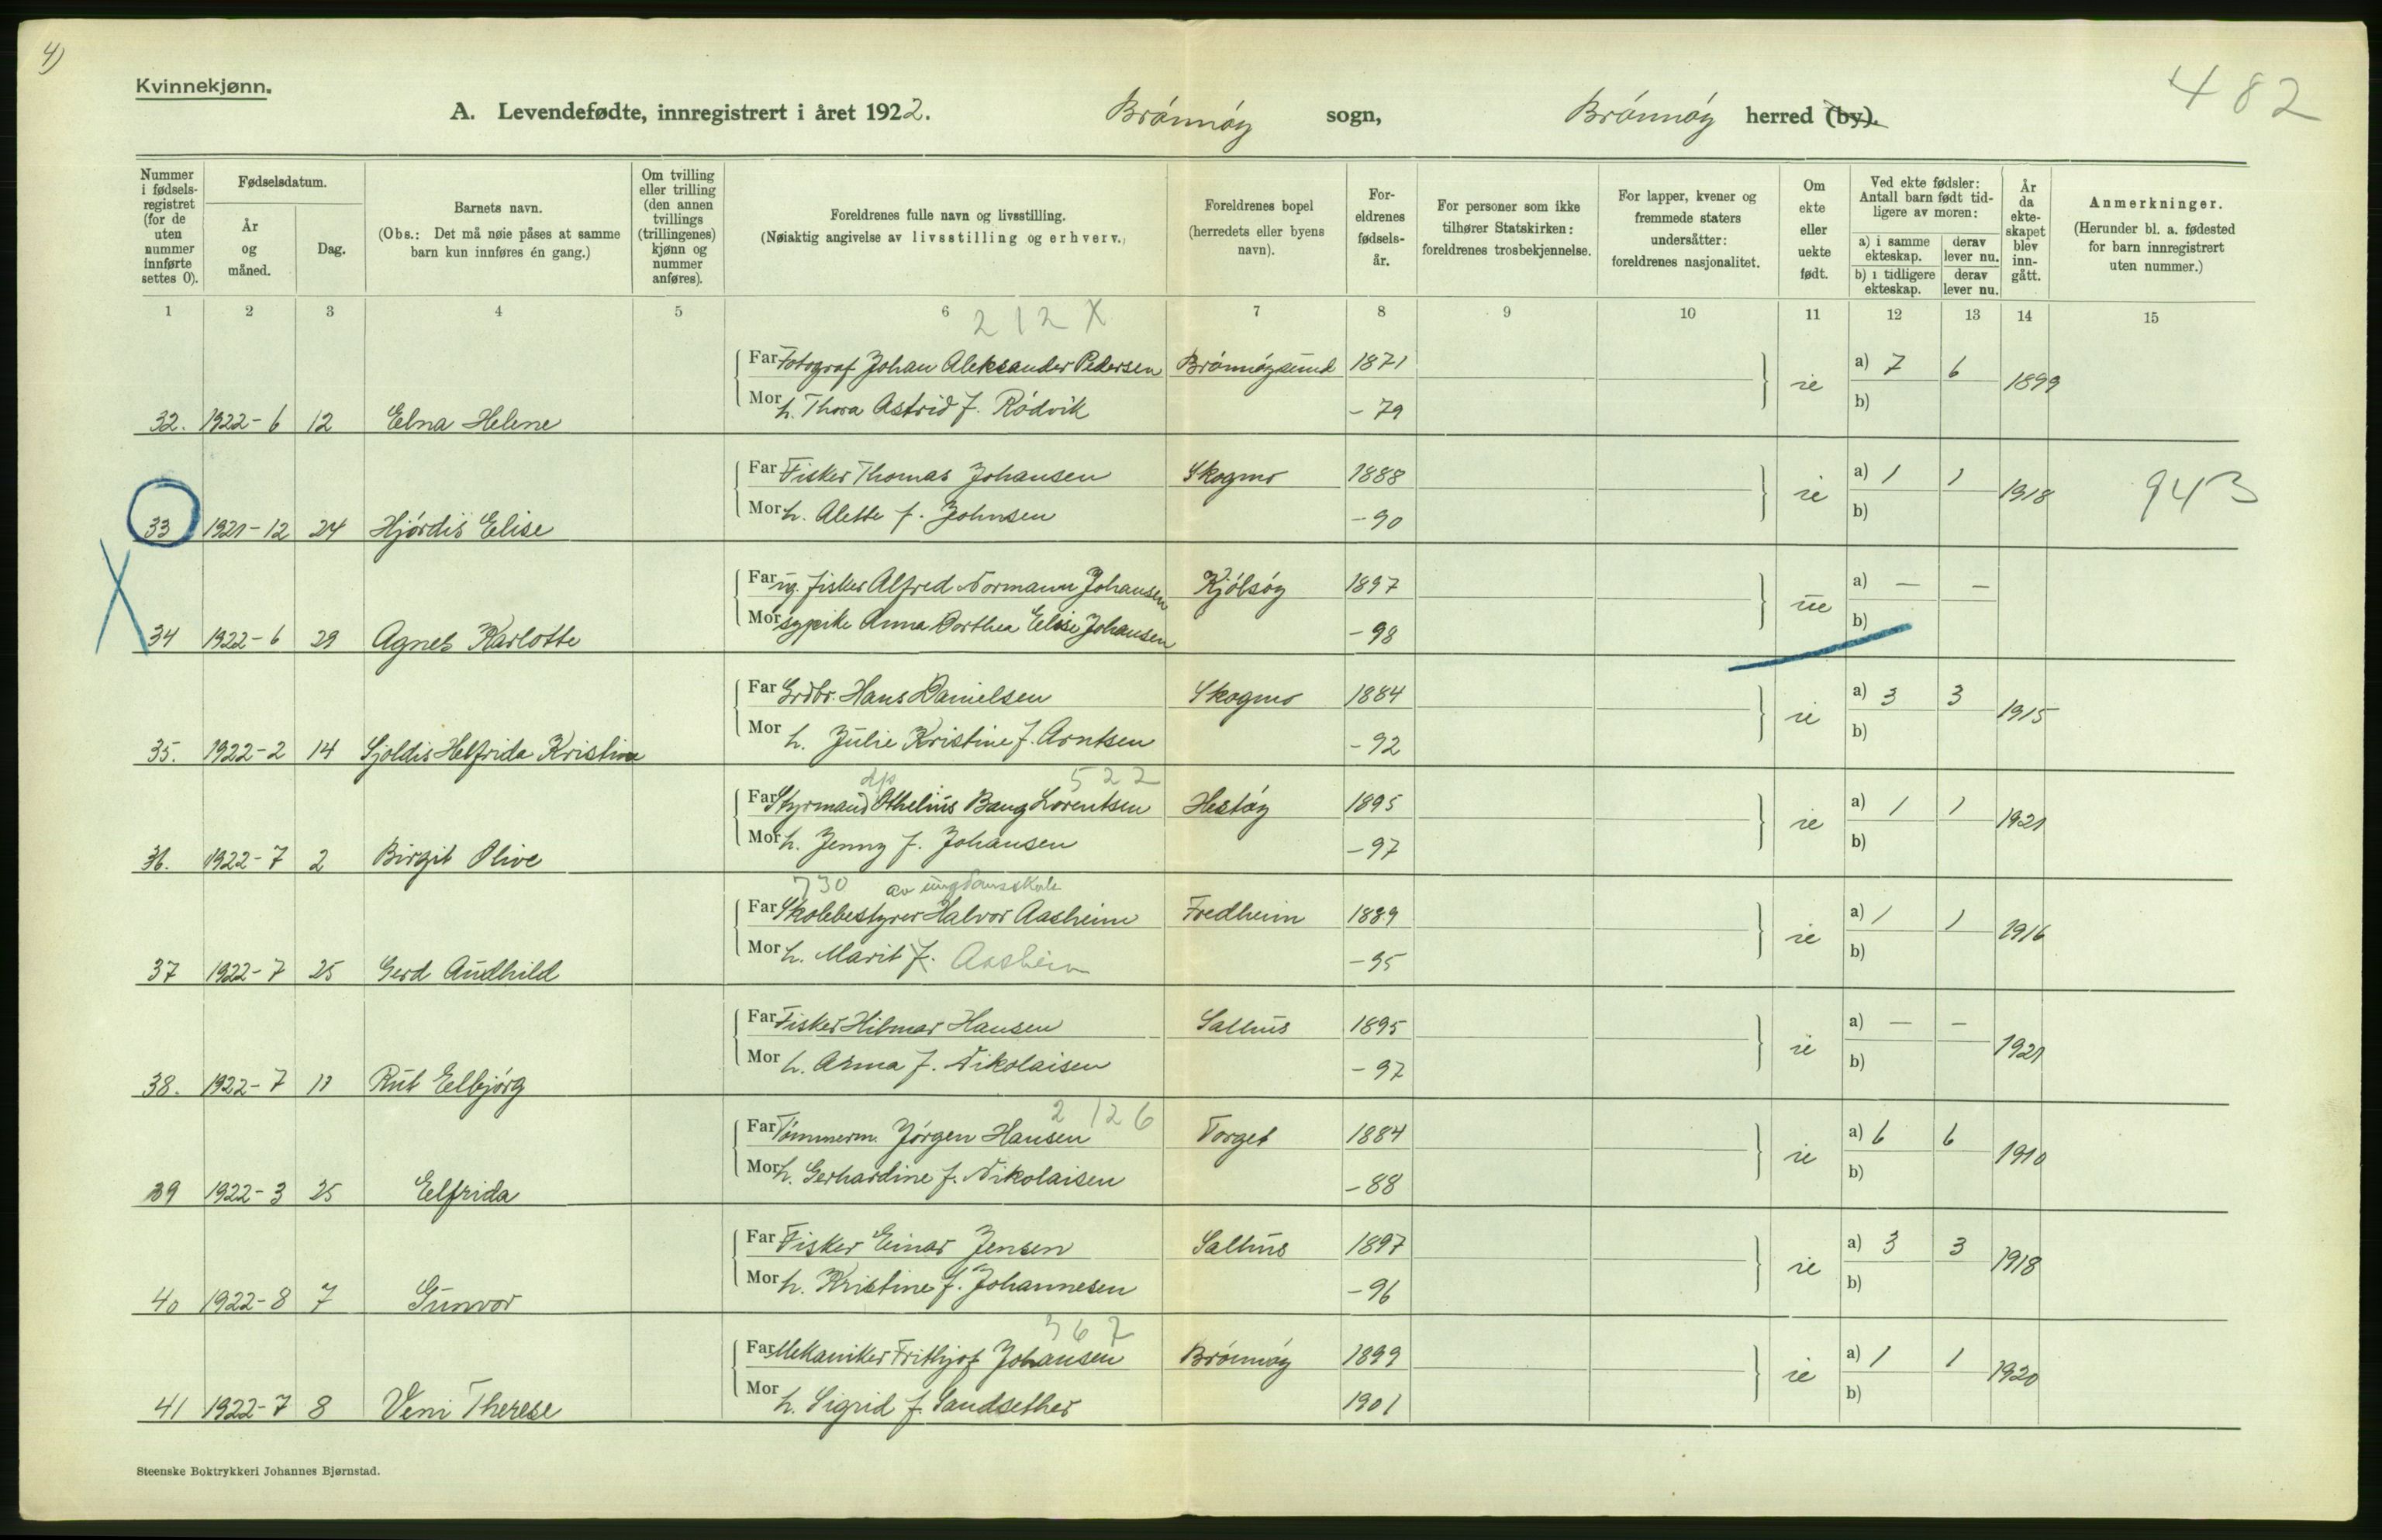 4)
Kvinnekjønn.
482
A. Levendefødte, innregistrert i året 1922. Brónnóy sogn, Brónnóy herred (by).
Nummer i fødsels-registret (for de uten nummer innførte settes 0).
Fødselsdatum.
År og måned.
Dag.
Barnets navn.
(Obs.: Det må nøie påses at samme barn kun innføres én gang.)
Om tvilling eller trilling (den annen tvillings (trillingenes) kjønn og nummer anføres).
Foreldrenes fulle navn og livsstilling.
(Nøiaktig angivelse av livsstilling og erhverv.)
Foreldrenes bopel (herredets eller byens navn).
For-eldrenes fødsels-år.
For personer som ikke tilhører Statskirken: foreldrenes trosbekjennelse.
For lapper, kvener og fremmede staters undersåtter: foreldrenes nasjonalitet.
Om ekte eller uekte født.
Ved ekte fødsler: Antall barn født tid-ligere av moren:
a) i samme ekteskap. derav lever nu.
b) i tidligere ekteskap. derav lever nu.
År da ekte-skapet blev inn-gått.
Anmerkninger.
(Herunder bl. a. fødested for barn innregistrert uten nummer.)
1 2 3 4 5 6 7 8 9 10 11 12 13 14 15
212 X
Far Fotograf Johan Aleksander Pedersen Brónnóysund 1871 a) 7 6
Mor h. Thora Astrid f. Ródvik - 79 ie b) 1899
32. 1922-6 12 Elna Helene
Far Fisker Thomas Johansen Skogmo 1888 a) 1 1
Mor h. Alette f. Johnsen - 90 ie b) 1918 943
33 1921-12 24 Hjórdis Elise
Far ug. fisker Alfred Normann Johansen Kjólsóy 1897 a) — —
Mor sypike Anna Dorthea Elise Johansen - 98 ue b)
34 1922-6 29 Agnes Karlotte
Far Grdbr. Hans Danielsen Skogmo 1884 a) 3 3
Mor h. Julie Kristine f. Arntsen - 92 ie b) 1915
35. 1922-2 14 Sjoldis Helfrida Kristine
dp 522
Far Styrmand Othelius Bang Lorentsen Hestóy 1895 a) 1 1
Mor h. Jenny f. Johansen - 97 ie b) 1921
36. 1922-7 2 Birgit Olive
730 av ungdomsskole
Far Skolebestyrer Halvor Aasheim Fredheim 1889 a) 1 1
Mor h. Marit f. Aasheim - 95 ie b) 1916
37 1922-7 25 Gerd Audhild
Far Fisker Hilmar Hansen Salhus 1895 a) — —
Mor h. Anna f. Nikolaisen - 97 ie b) 1921
38. 1922-7 11 Rut Elbjórg
2126
Far Tómmerm. Jórgen Hansen Torget 1884 a) 6 6
Mor h. Gerhardine f. Nikolaisen - 88 ie b) 1910
39 1922-3 25 Elfrida
Far Fisker Einar Jensen Salhus 1897 a) 3 3
Mor h. Kristine f. Johannesen - 96 ie b) 1918
40 1922-8 7 Gunvor
367
Far Mekaniker Frithjof Johansen Brónnóy 1899 a) 1 1
Mor h. Sigrid f. Sandsether 1901 ie b) 1920
41 1922-7 8 Veni Therese
Steenske Boktrykkeri Johannes Bjørnstad.